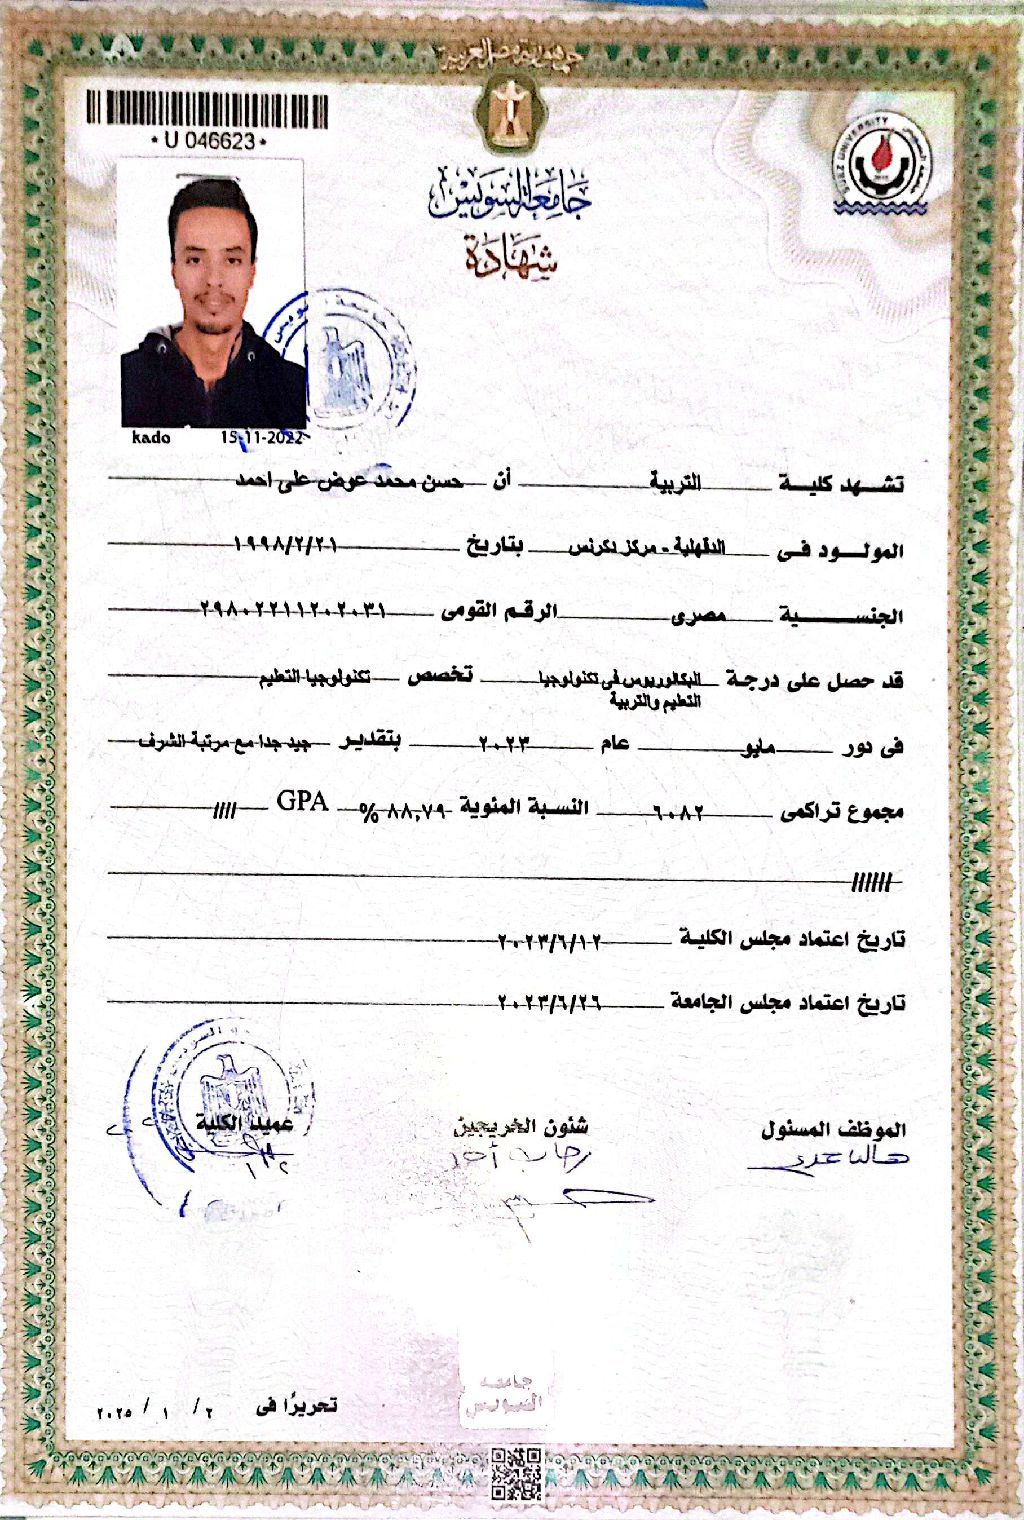 جمهورية مصر العربية
* U 046623 *
SUEZ UNIVERSITY
جامعة السويس
شهادة
kado 15-11-2022
تشهد كلية التربية أن حسن محمد عوض على احمد
المولود فى الدقهلية - مركز دكرنس بتاريخ ١٩٩٨/٢/٢١
الجنسية مصرى الرقم القومى ٢٩٨٠٢٢١١٢٠٢٠٣١
قد حصل على درجة البكالوريوس فى تكنولوجيا التعليم والتربية تخصص تكنولوجيا التعليم
فى دور مايو عام ٢٠٢٣ بتقدير جيد جدا مع مرتبة الشرف
مجموع تراكمى ٦٠٨٢ النسبة المئوية ٨٨,٧٩ % GPA ////
//////
تاريخ اعتماد مجلس الكلية ٢٠٢٣/٦/١٢
تاريخ اعتماد مجلس الجامعة ٢٠٢٣/٦/٢٦
الموظف المسئول شئون الخريجين عميد الكلية
جامعة
السويس
تحريرًا فى ٢ / ١ / ٢٠٢٥